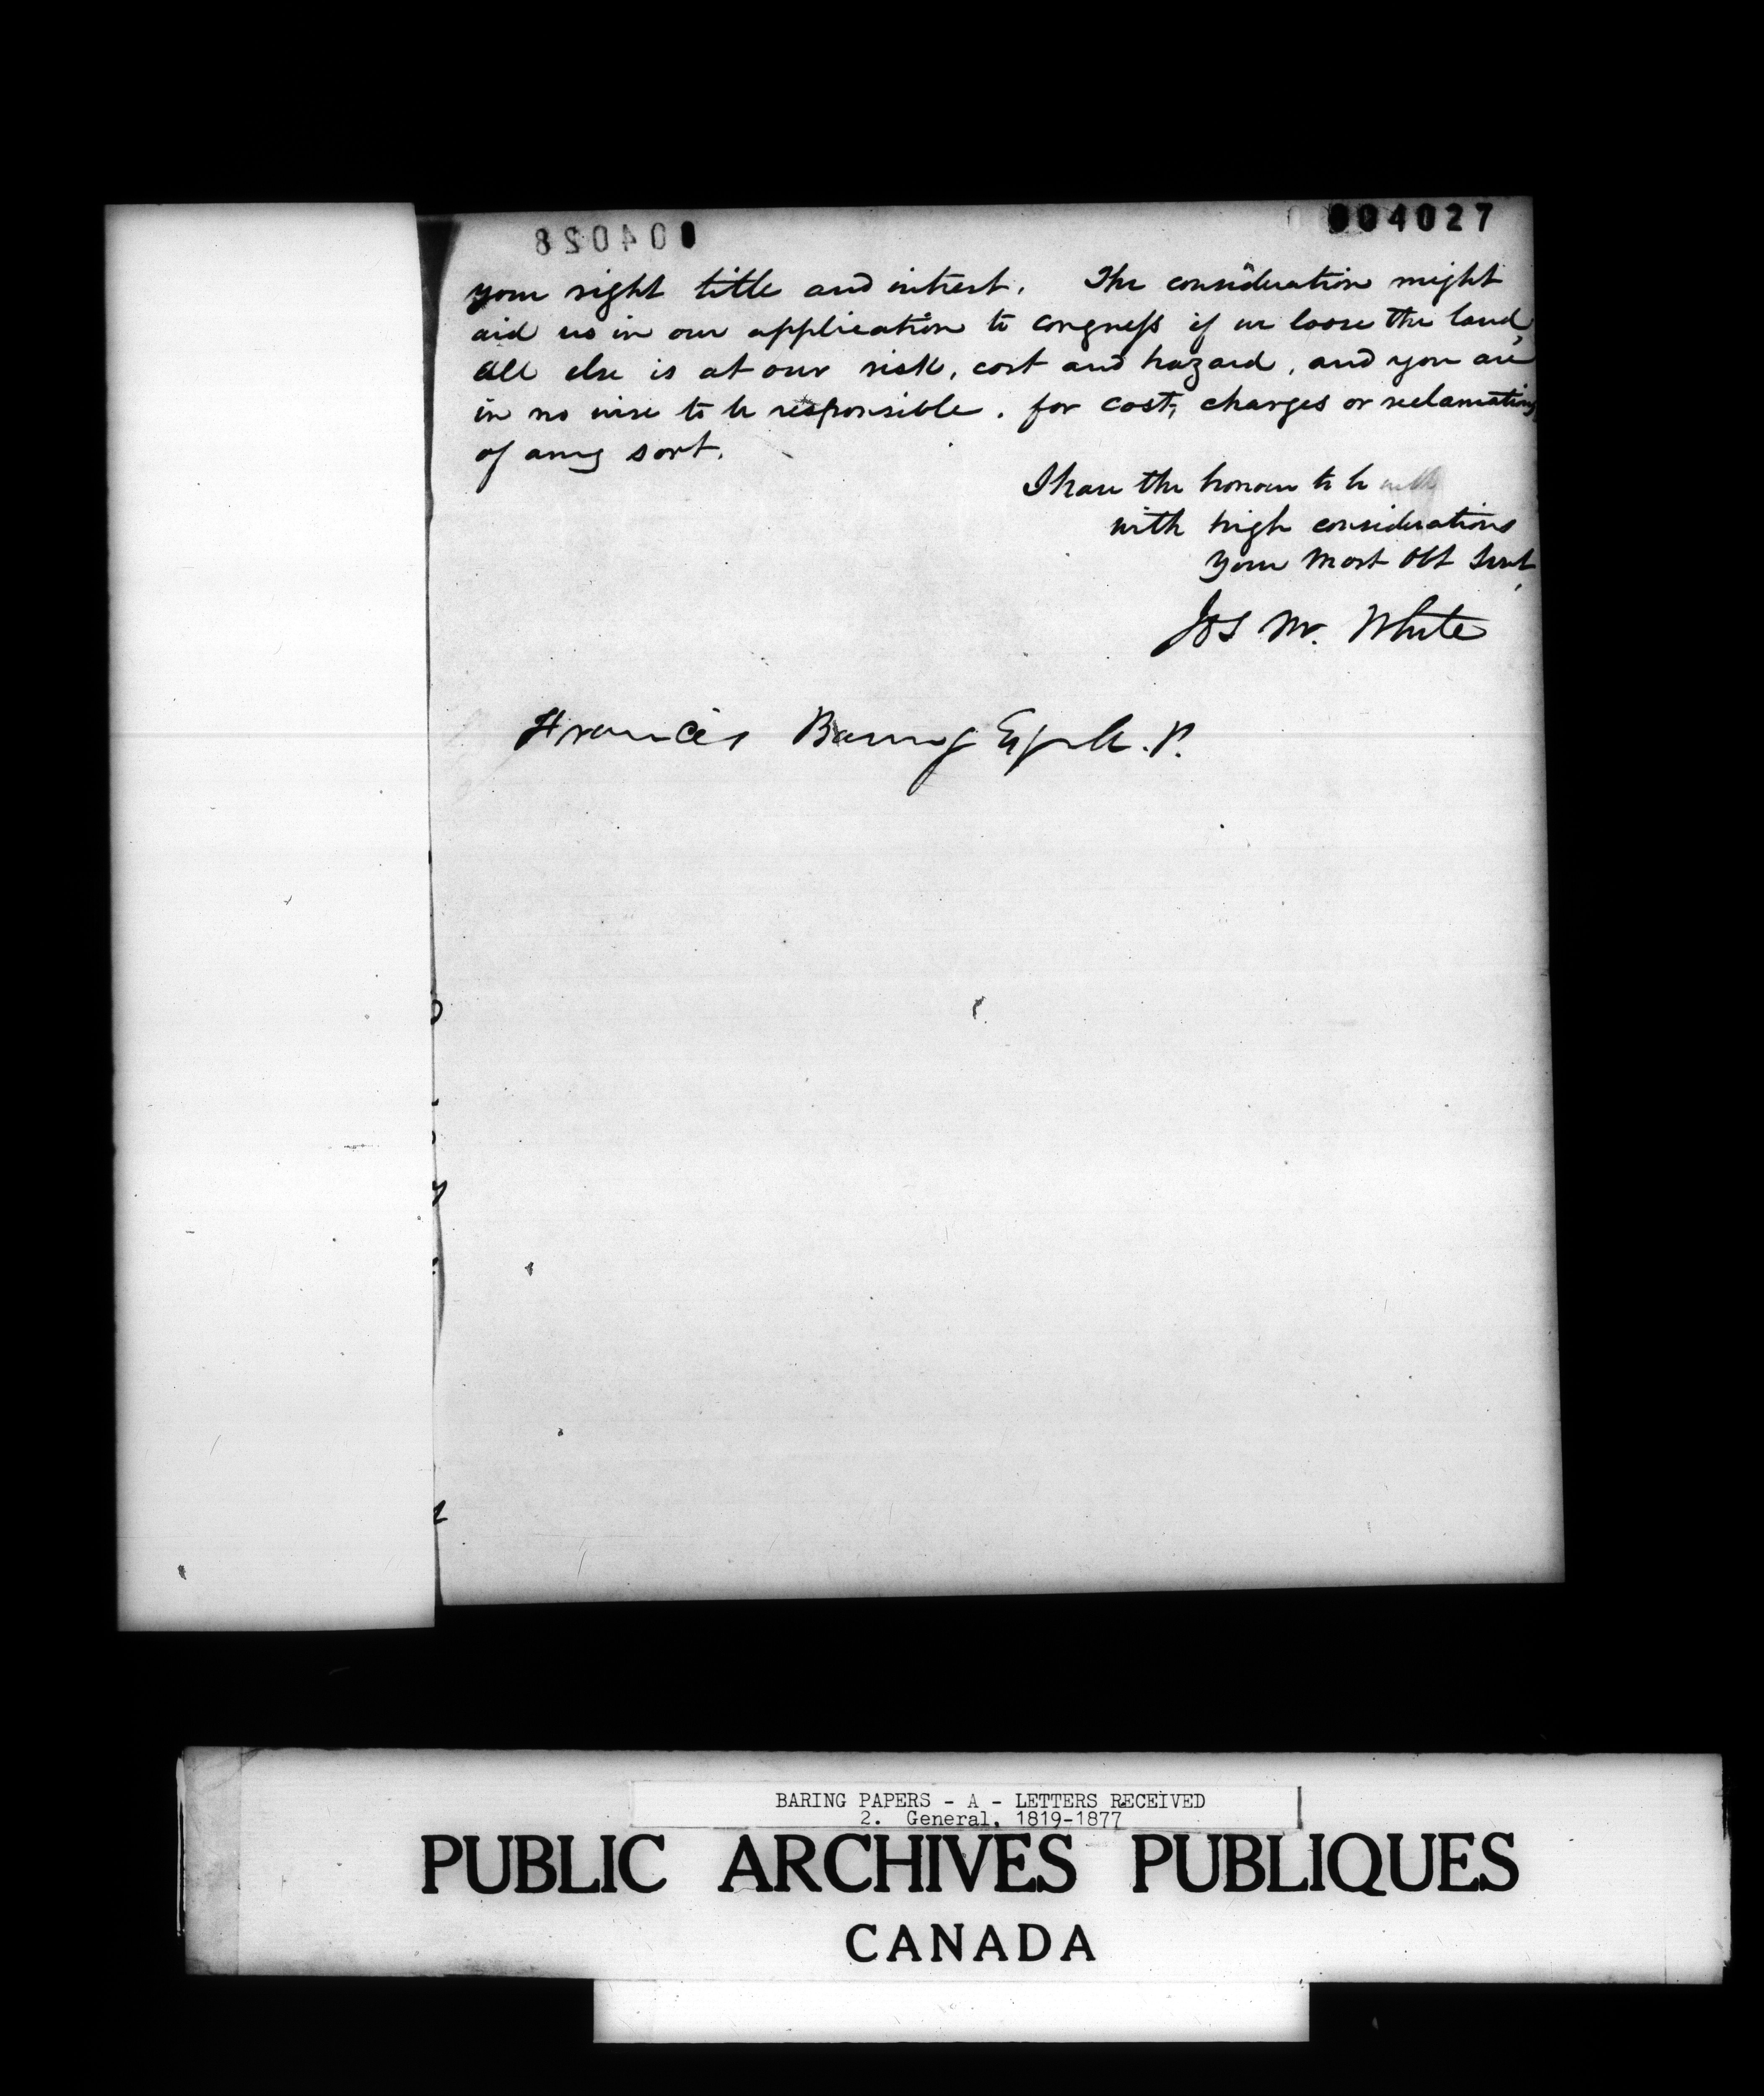 004027
004028
your right title and intrest. The consideration might
aid us in our application to congress if we loose the land,
All else is at our risk, cost and hazard, and you are
in no wise to be responsible. for cost, charges or reclamations
of any sort.
I have the honour to be with
with high considerations
your most Obt Servt
Jos M. White
Francis Baring Esq M.P.
BARING PAPERS - A - LETTERS RECEIVED
2. General, 1819-1877
PUBLIC ARCHIVES PUBLIQUES
CANADA